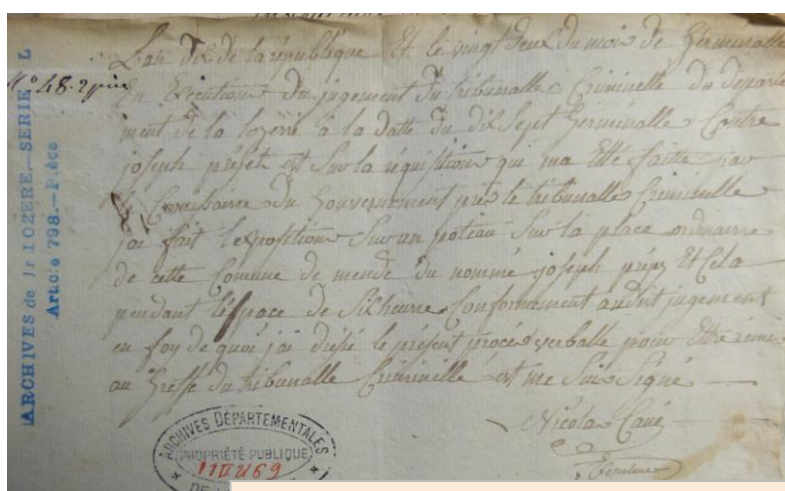 L'an dix de la république Et le vingt deux du mois de Germinalle
N° 48. 2 pièce
En Execution du jugement du tribunalle Criminelle du départe
ment de la lozerre à la datte du dix Sept Germinalle Contre
joseph préjet est Sur la réquisition qui ma Etté faitte par
le Comissaire du Gouvernement près le tribunalle Criminelle
jai fait l'exposition Sur un poteau Sur la place ordinairre
de cette Comune de mende du nommé joseph Et Cela
pendant l'espace de Six heurre Confornament audit jugement
en foy de quoi jai dressé le présent procé verballe pour Ettre remi
au Greffe du tribunalle Criminelle est me Suis Signé
Nicolas
ARCHIVES de la LOZERE.-SERIE L
Article 798.-Pièce
ARCHIVES DÉPARTEMENTALES
PROPRIÉTÉ PUBLIQUE
DE